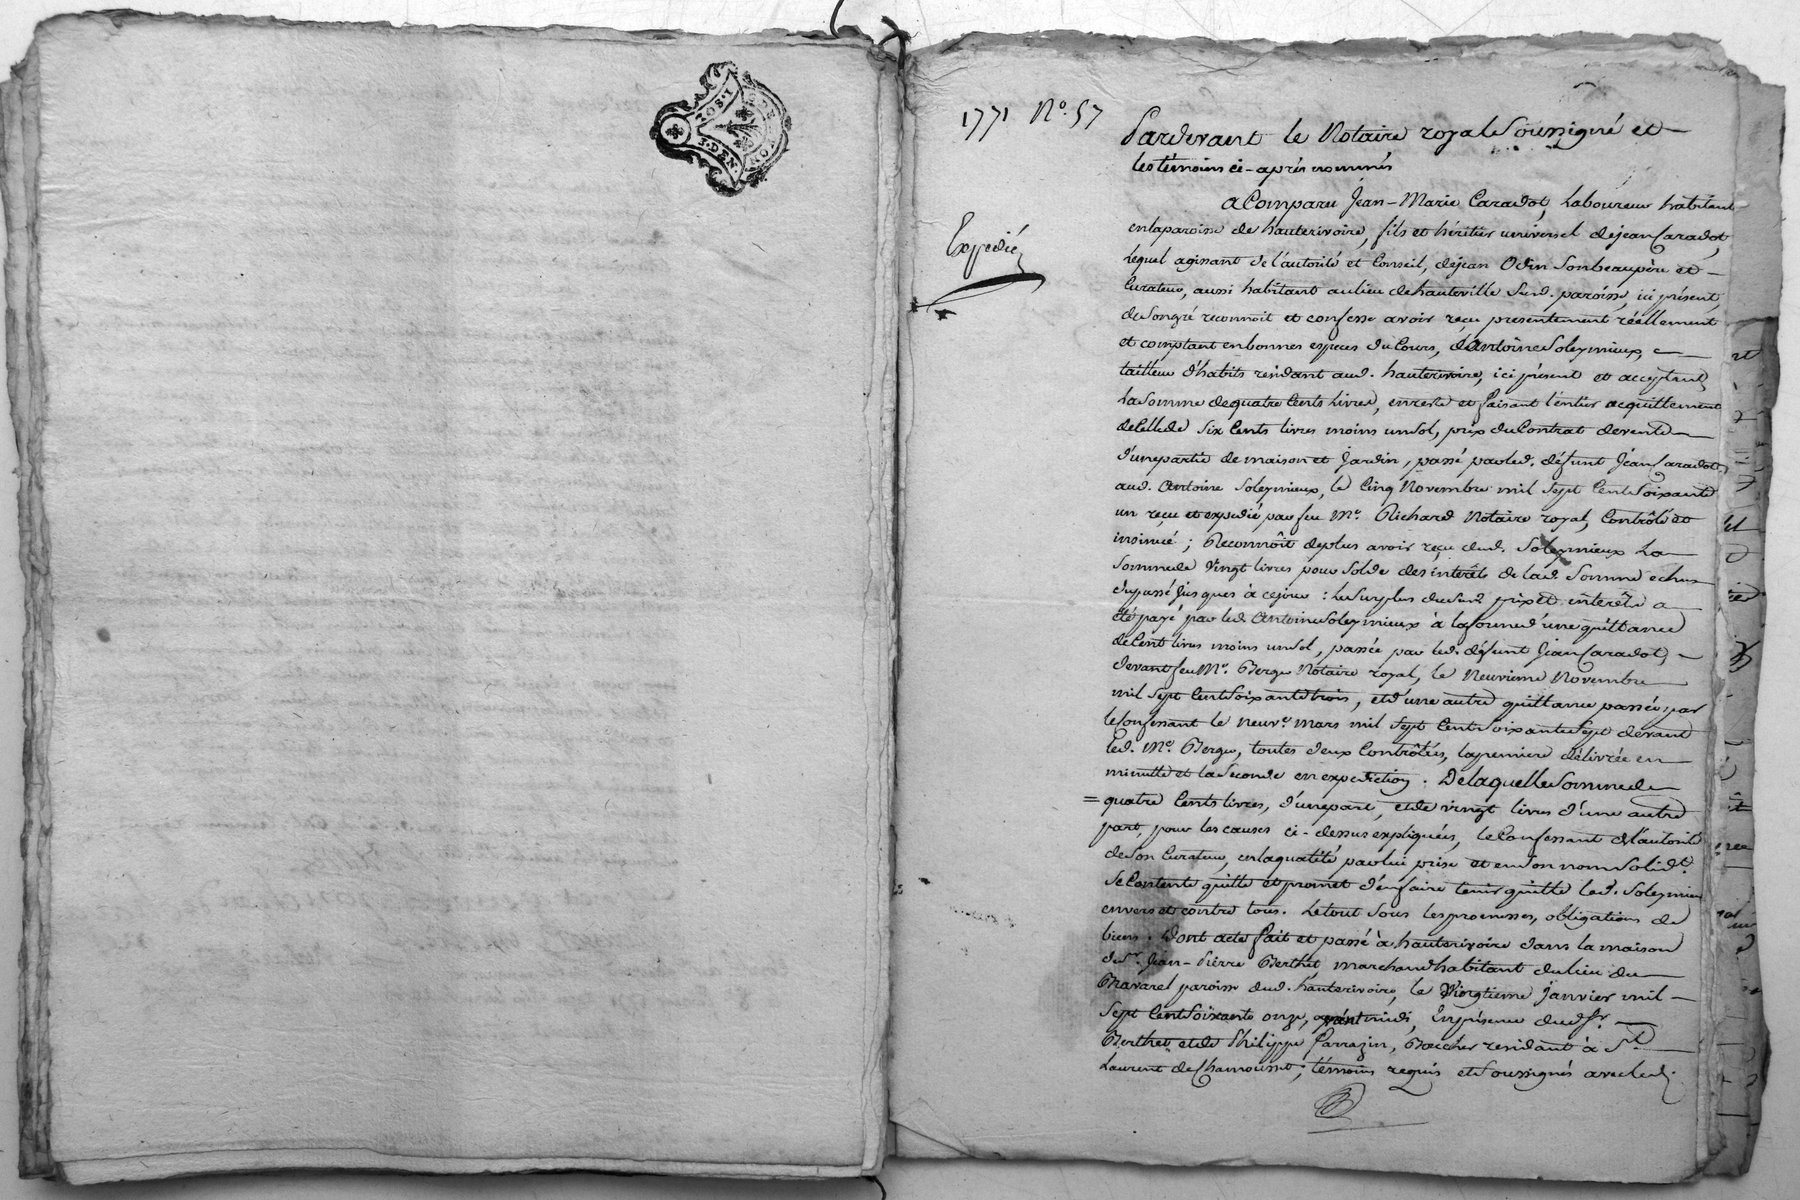 1771 N.º 57
Pardevant le Notaire royal Soussigné et
les témoins ci-après nommés
Expedié
a Comparu Jean-Marie Caradot, Laboureur habitant
en la paroisse de hauterivoire, fils et héritier universel de jean Caradot,
Lequel agissant de l'autorité et Conseil, de jean Odin Son beaupère et
Curateur, aussi habitant au lieu de hauteville Susd. paroisse, ici présent,
de Son gré reconnoit et confesse avoir reçu presentement réellement
et comptant en bonnes especes du Cours, d'Antoine Soleymieux,
tailleur d'habits résidant aud. hauterivoire, ici présent et acceptant
La Somme de quatre Cents Livres, en reste et faisant l'entier acquittement
de Celle de Six Cents livres moins un Sol, prix du Contrat de vente
d'une partie de maison et Jardin, passé par led. défunt Jean Caradot
aud. Antoine Soleymieux, le Cinq Novembre mil Sept Cent Soixante
un reçu et expedié par feu Me. Richard Notaire royal, Contrôlé et
insinué ; Reconnoît de plus avoir reçu dud. Soleymieux La
Somme de Vingt livres pour Solde des interêts de lad. Somme echus
du passé jusques à ce jour : Le Surplus du Susd. prix et interêts a
été payé par led. Antoine Soleymieux à la forme d'une quittance
de Cent livres moins un Sol, passée par led. défunt Jean Caradot,
devant feu Me. Berge Notaire royal, le Neuvieme Novembre
mil Sept Cent Soixante trois, et d'une autre quittance passée par
le Confessant le neuve. mars mil Sept Cent Soixante Sept devant
led. Me. Berge, toutes deux Contrôlées, la premiere délivrée en
minutte et la Seconde en expedition. De laquelle Somme de
= quatre Cents livres, d'une part, et de vingt livres d'une autre
part, pour les causes ci-dessus expliquées, le Confessant de l'autorité
de Son Curateur, en la qualité par lui prise et en Son nom Solidt.
Se Contente quitte et promet d'en faire tenir quitte led. Soleymieux
envers et contre tous. Le tout Sous les promesses, obligations de
biens. Dont acte fait et passé à hauterivoire dans la maison
de Sr. Jean-Pierre Berthet, marchand habitant du lieu du
Bravarel paroisse dud. hauterivoire, le Vingtieme Janvier mil
Sept Cent Soixante onze, avant midi, En présence dud. Sr.
Berthet et de Philippe Parrazin, Boucher residant à St.
Laurent de Chamousset, témoins requis et Soussignés avec led.